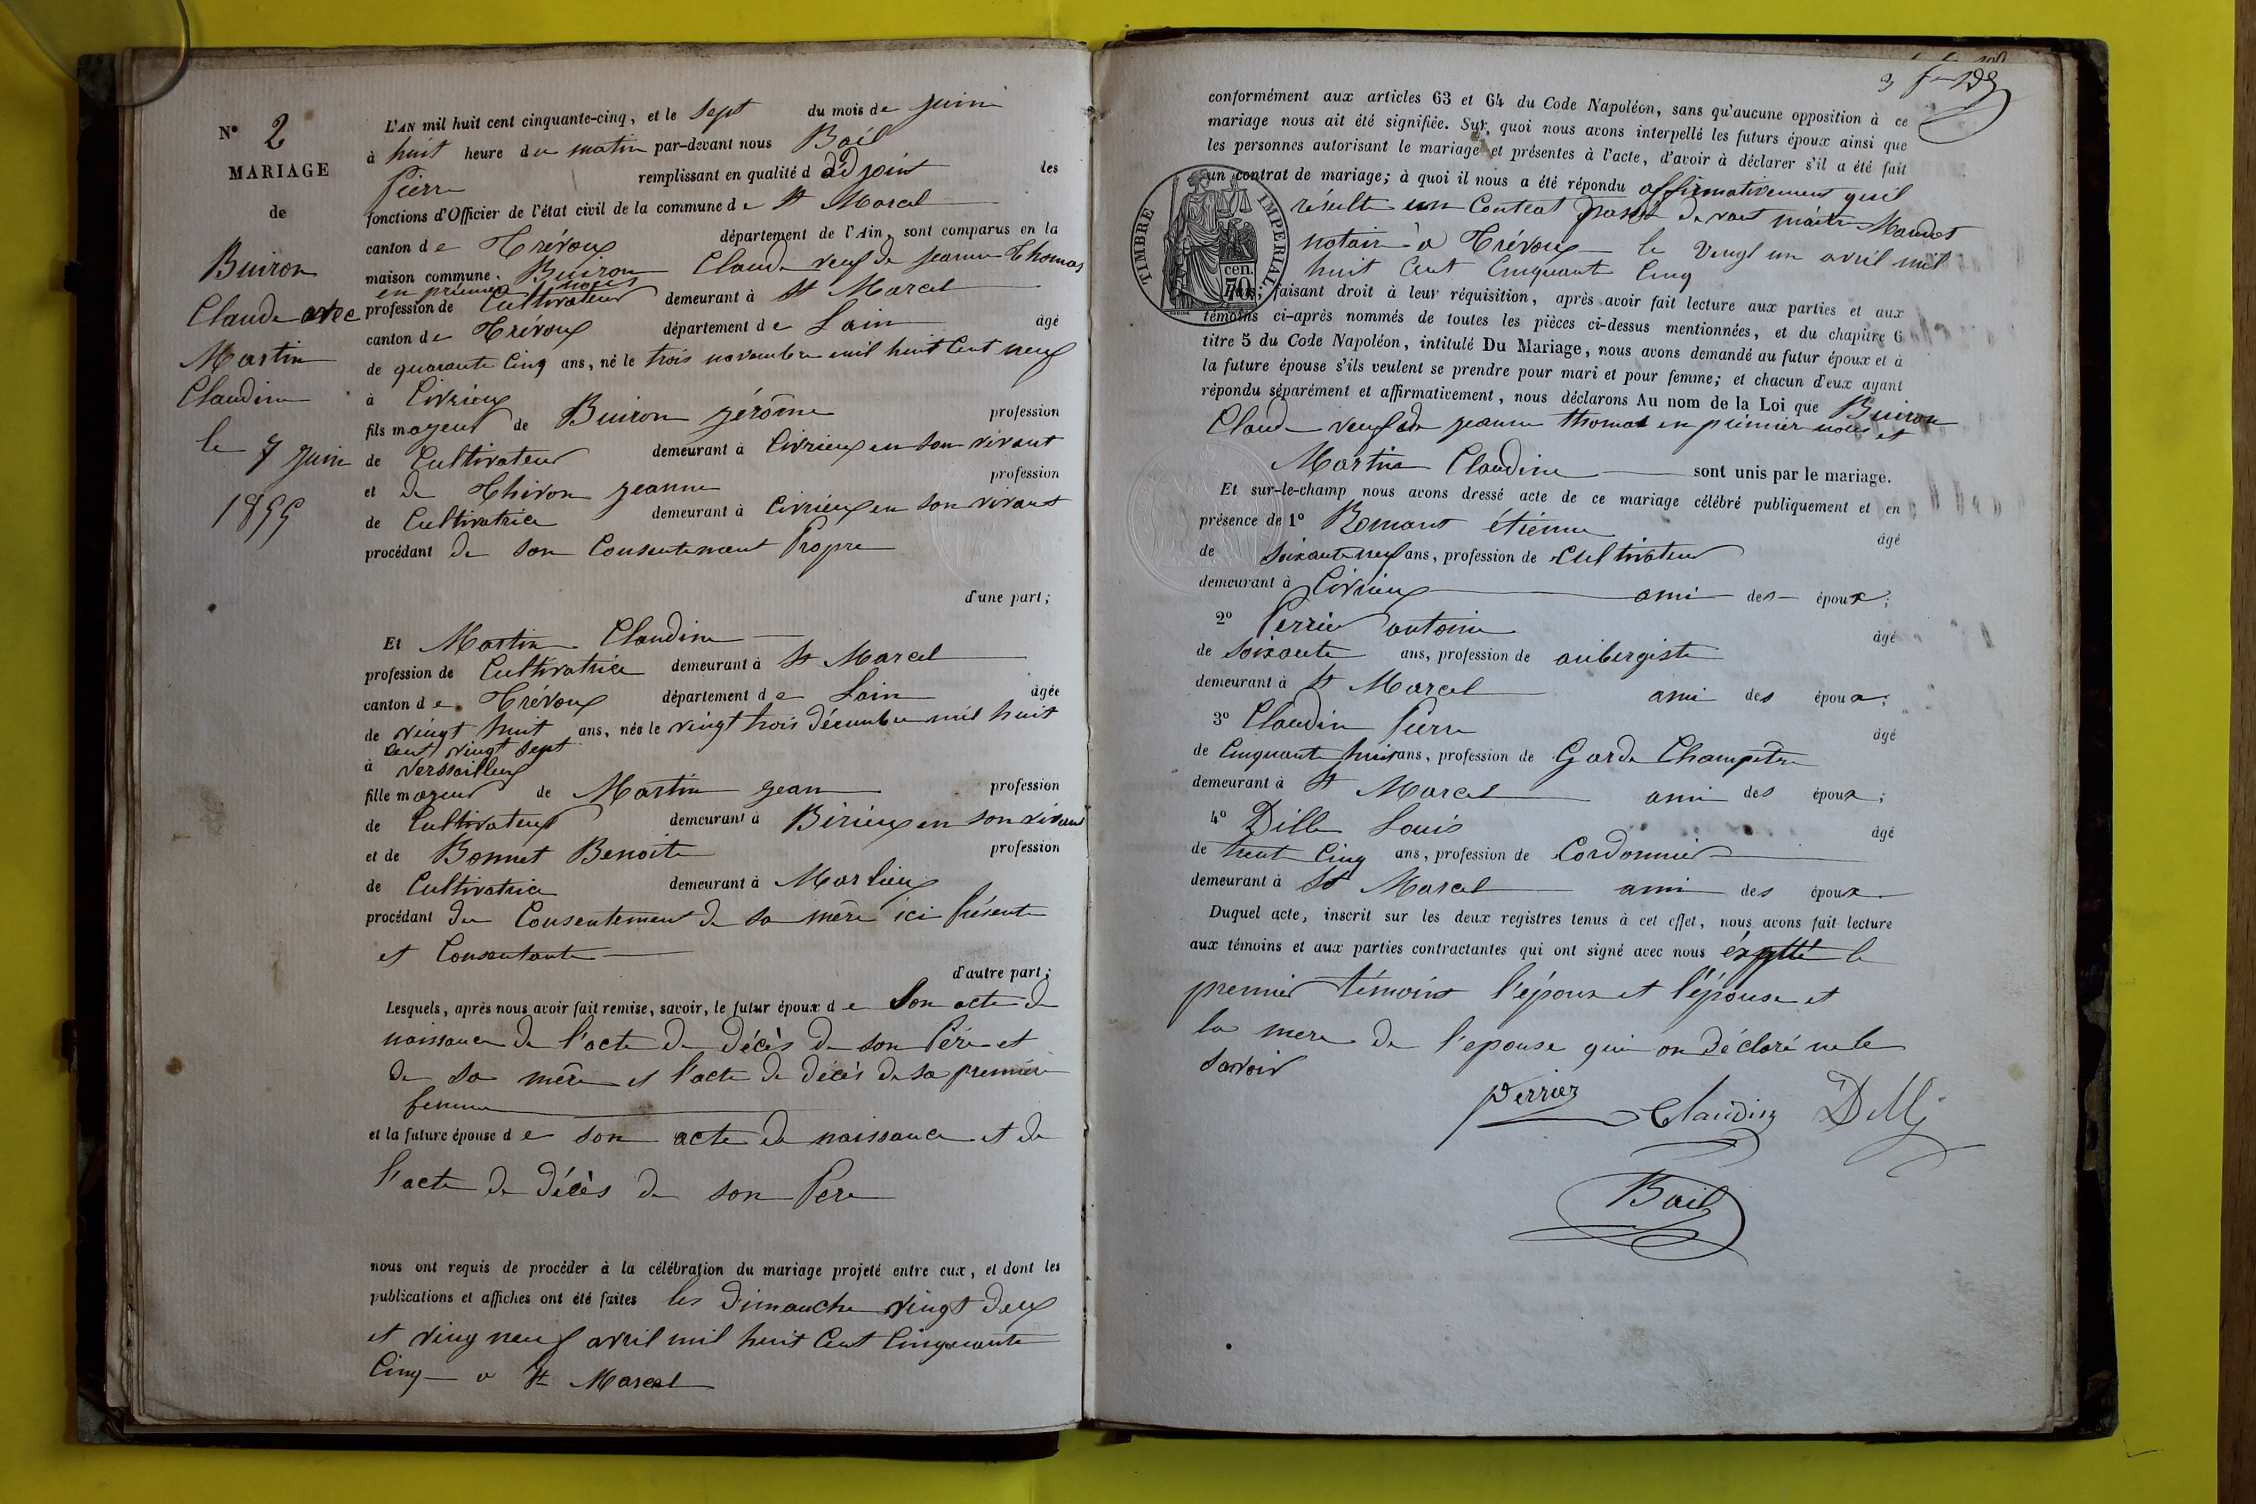 N° 2
MARIAGE
de
Buiron
Claude avec
Martin
Claudine
le 7 juin
1855
L'AN mil huit cent cinquante-cinq, et le sept du mois de juin
à huit heure du matin par-devant nous Bail
Pierre remplissant en qualité d adjoint les
fonctions d'Officier de l'état civil de la commune de St Marcel
canton de Trévoux département de l'Ain, sont comparus en la
maison commune. Buiron Claude veuf de jeanne Thomas
en premier noces
profession de Cultivateur demeurant à St Marcel
canton de Trévoux département de Lain âgé
de quarante Cinq ans, né le trois novembre mil huit Cent neuf
à Civrieux
fils majeur de Buiron jérôme profession
de Cultivateur demeurant à Civrieux en son vivant
et de Thivon jeanne profession
de Cultivatrice demeurant à Civrieux en son vivant
procédant de son Consentement Propre
d'une part;
Et Martin Claudine
profession de Cultivatrice demeurant à St Marcel
canton de Trévoux département de Lain âgée
de vingt huit ans, née le vingt trois décembre mil huit
cent vingt sept
à Verssailleux
fille majeur de Martin jean profession
de Cultivateur demeurant à Birieux en son vivant
et de Bonnet Benoite profession
de Cultivatrice demeurant à Marlieux
procédant du Consentement de sa mère ici présente
et Consentante
d'autre part;
Lesquels, après nous avoir fait remise, savoir, le futur époux de Son acte de
naissance de l'acte de décès de son Père et
de sa mère et l'acte de décès de sa première
femme
et la future épouse de son acte de naissance et de
l'acte de décès de son Pere
nous ont requis de procéder à la célébration du mariage projeté entre eux, et dont les
publications et affiches ont été faites les dimanche vingt deux
et ving neuf avril mil huit Cent Cinquante
Cinq a St Marcel
conformément aux articles 63 et 64 du Code Napoléon, sans qu'aucune opposition à ce
mariage nous ait été signifiée. Sur quoi nous avons interpellé les futurs époux ainsi que
les personnes autorisant le mariage et présentes à l'acte, d'avoir à déclarer s'il a été fait
un contrat de mariage; à quoi il nous a été répondu affirmativement quil
résulte un Contrat passé devant maître Mandot
notaire à Trévoux le vingt un avril mil
huit Cent Cinquante Cinq
TIMBRE IMPERIAL
cen.
70
Puis, faisant droit à leur réquisition, après avoir fait lecture aux parties et aux
témoins ci-après nommés de toutes les pièces ci-dessus mentionnées, et du chapitre 6
titre 5 du Code Napoléon, intitulé Du Mariage, nous avons demandé au futur époux et à
la future épouse s'ils veulent se prendre pour mari et pour femme; et chacun d'eux ayant
répondu séparément et affirmativement, nous déclarons Au nom de la Loi que Buiron
Claude veuf de jeanne thomas en premier noces et
Martin Claudine sont unis par le mariage.
Et sur-le-champ nous avons dressé acte de ce mariage célébré publiquement et en
présence de 1° Romans étienne âgé
de soixante neuf ans, profession de Cultivateur
demeurant à Civrieux ami des époux;
2° Perrier antoine âgé
de soixante ans, profession de aubergiste
demeurant à St Marcel ami des époux;
3° Claudin Pierre âgé
de Cinquante huit ans, profession de Garde Champêtre
demeurant à St Marcel ami des époux;
4° Dille Louis âgé
de trente Cinq ans, profession de Cordonnier
demeurant à St Marcel ami des époux
Duquel acte, inscrit sur les deux registres tenus à cet effet, nous avons fait lecture
aux témoins et aux parties contractantes qui ont signé avec nous éxptté le
premier témoins l'époux et l'épouse et
la mere de l'epouse qui on déclaré ne le
savoir
Perrier Claudin Dille
Bail